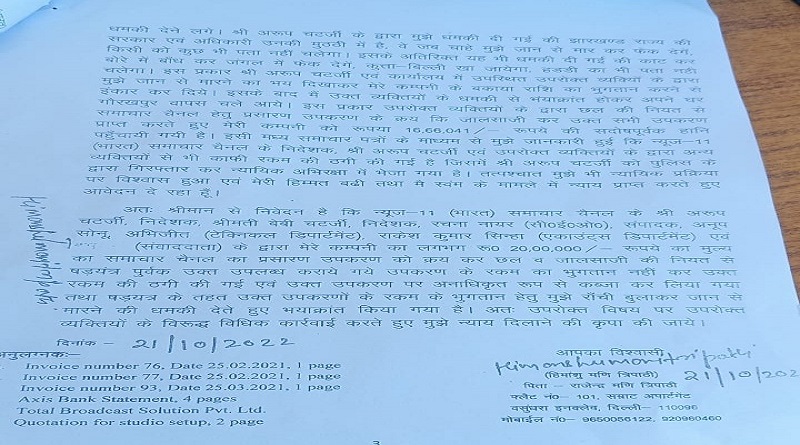 धमकी देने लगें। श्री अरूप चटर्जी के द्वारा मुझे धमकी दी गई की झारखण्ड राज्य की
सरकार एवं अधिकारी उनकी मुठठी में है, वे जब चाहे मुझे जान से मार कर फेंक दें,
किसी को कुछ भी पता नहीं चलेगा। इसके अतिरिक्त यह भी धमकी दी गई की काट कर
बोरे में बाँध कर जंगल में फेंक देंगे, कुत्ता-बिल्ली खा जायेगा, हडडी का भी पता नहीं
चलेगा। इस प्रकार श्री अरूप चटर्जी एवं कार्यालय में उपस्थित उपरोक्त व्यक्तियों के द्वारा
मुझे जान से मारने का भय दिखाकर मेरे कम्पनी के बकाया राशि का भुगतान करने से
इंकार कर दिये। इसके बाद में उक्त व्यक्तियों के धमकी से भयाक्रांत होकर अपने घर
गोरखपुर वापस चले आये। इस प्रकार उपरोक्त व्यक्तियों के द्वारा छल की नियत से
समाचार चैनल हेतु प्रसारण उपकरण के क्रय कि जालसाजी कर उक्त सभी उपकरण
प्राप्त करते हुए मेरी कम्पनी को रूपया 16,66,041/- रूपये की सदोषपूर्वक हानि
पहुँचायी गयी है। इसी मध्य समाचार पत्रों के माध्यम से मुझे जानकारी हुई कि न्यूज-11
(भारत) समाचार चैनल के निदेशक, श्री अरूप चटर्जी एवं उपरोक्त व्यक्तियों के द्वारा अन्य
व्यक्तियों से भी काफी रकम की ठगी की गई है जिसमें श्री अरूप चटर्जी को पुलिस के
द्वारा गिरफ्तार कर न्यायिक अभिरक्षा में भेजा गया है। तत्पश्चात मुझे भी न्यायिक प्रक्रिया
पर विश्वास हुआ एवं मेरी हिम्मत बढी तथा मै स्वंम के मामले में न्याय प्राप्त करते हुए
आवेदन दे रहा हूँ।
अतः श्रीमान से निवेदन है कि न्यूज-11 (भारत) समाचार चैनल के श्री अरूप
चटर्जी, निदेशक, श्रीमती बेबी चटर्जी, निदेशक, रचना नायर (सी०ई०ओ०), संपादक, अनूप
सोनू, अभिजीत (टेक्निकल डिपार्टमेंट), राकेश कुमार सिन्हा (एकाउंट्स डिपार्टमेंट) एवं
(संवाददाता) के द्वारा मेरे कम्पनी का लगभग रू० 20,00,000/- रूपये का मुल्य
का समाचार चैनल का प्रसारण उपकरण को क्रय कर छल व जालसाजी की नियत से
षड़यंत्र पुर्वक उक्त उपलब्ध कराये गये उपकरण के रकम का भुगतान नहीं कर उक्त
रकम की ठगी की गई एवं उक्त उपकरण पर अनाधिकृत रूप से कब्जा कर लिया गया
तथा षड़यंत्र के तहत उक्त उपकरणों के रकम के भुगतान हेतु मुझे राँची बुलाकर जान से
मारने की धमकी देते हुए भयाक्रांत किया गया है। अतः उपरोक्त विषय पर उपरोक्त
व्यक्तियों के विरूद्ध विधिक कार्रवाई करते हुए मुझे न्याय दिलाने की कृपा की जाये।
दिनांक - 21/10/2022
अनुलग्नकः-
Invoice number 76, Date 25.02.2021, 1 page
Invoice number 77, Date 25.02.2021, 1 page
Invoice number 93, Date 25.03.2021, 1 page
Axis Bank Statement, 4 pages
Total Broadcast Solution Pvt. Ltd.
Quotation for studio setup, 2 page
आपका विश्वासी
Himanshu mani tripathi
21/10/202
(हिमांशु मणि त्रिपाठी)
पिता - राजेन्द्र मणि त्रिपाठी
फ्लैट नं०- 101, सम्राट अपार्टमेंट
वसुंधरा इनक्लेव, दिल्ली- 110096
मोबाईल नं०- 9650056122, 920960460
3